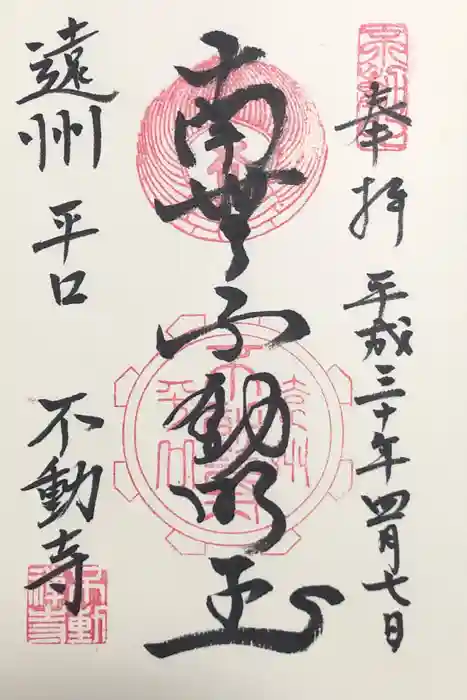 奉拝 平成三十年四月七日
南無不動明王
遠州 平口 不動寺